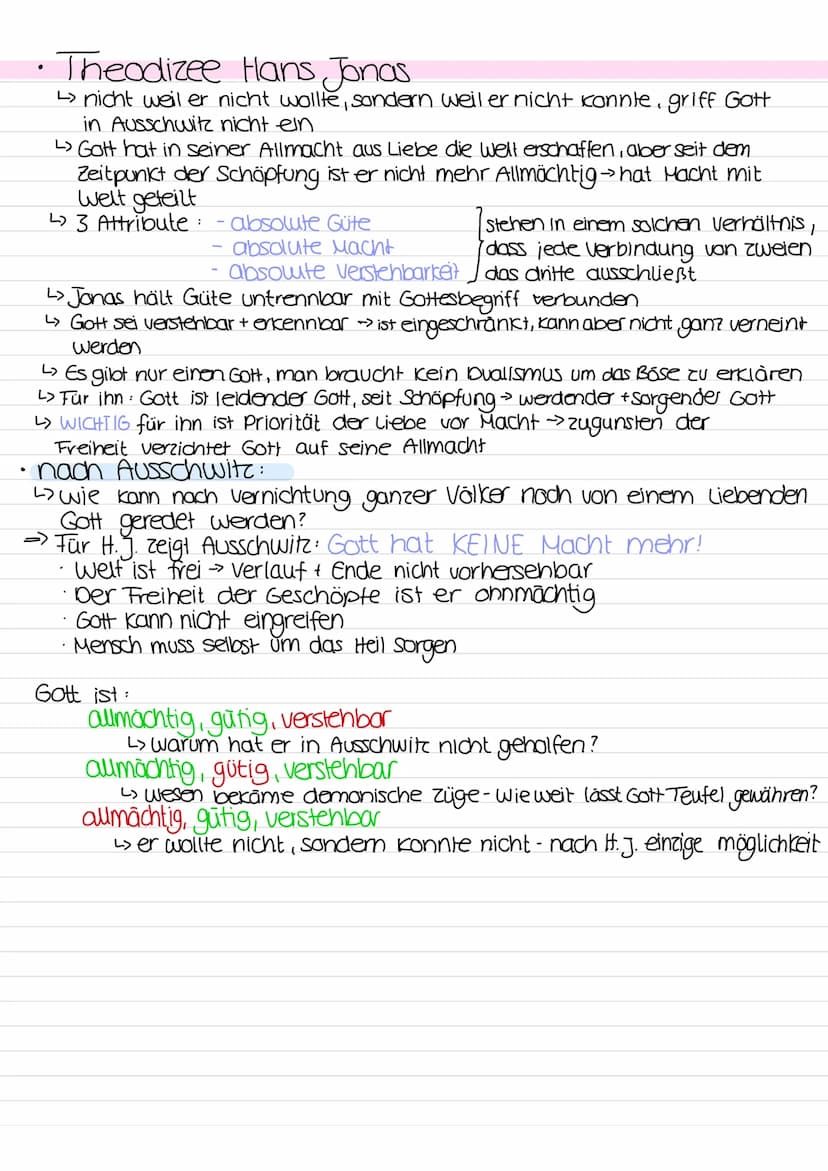 · Theodizee Hans Jonas
↳ nicht weil er nicht wollte, sondern weil er nicht konnte, griff Gott
in Ausschwitz nicht ein
↳ Gott hat in seiner Allmacht aus Liebe die Welt erschaffen, aber seit dem
Zeitpunkt der Schöpfung ist er nicht mehr Allmächtig → hat Macht mit
Welt geteilt
↳ 3 Attribute: - absolute Güte ] stehen in einem solchen Verhältnis,
- absolute Macht dass jede Verbindung von zweien
- absolute Verstehbarkeit das dritte ausschließt
↳ Jonas hält Güte untrennbar mit Gottesbegriff verbunden
↳ Gott sei verstehbar + erkennbar → ist eingeschränkt, kann aber nicht ganz verneint
werden
↳ Es gibt nur einen Gott, man braucht kein Dualismus um das Böse zu erklären
↳ Für ihn: Gott ist leidender Gott, seit Schöpfung → werdender + sorgender Gott
↳ WICHTIG für ihn ist Priorität der Liebe vor Macht → zugunsten der
Freiheit verzichtet Gott auf seine Allmacht
· nach Ausschwitz:
↳ wie kann nach Vernichtung ganzer Völker noch von einem Liebenden
Gott geredet werden?
⇒ Für H.J. zeigt Ausschwitz: Gott hat KEINE Macht mehr!
· Welt ist frei → Verlauf + Ende nicht vorhersehbar
· Der Freiheit der Geschöpfe ist er ohnmächtig
· Gott kann nicht eingreifen
· Mensch muss selbst um das Heil sorgen
Gott ist:
allmächtig, gütig, verstehbar
↳ warum hat er in Ausschwitz nicht geholfen?
allmächtig, gütig, verstehbar
↳ Wesen bekäme demonische Züge - Wie weit lässt Gott Teufel gewähren?
allmächtig, gütig, verstehbar
↳ er wollte nicht, sondern konnte nicht - nach H.J. einzige möglichkeit